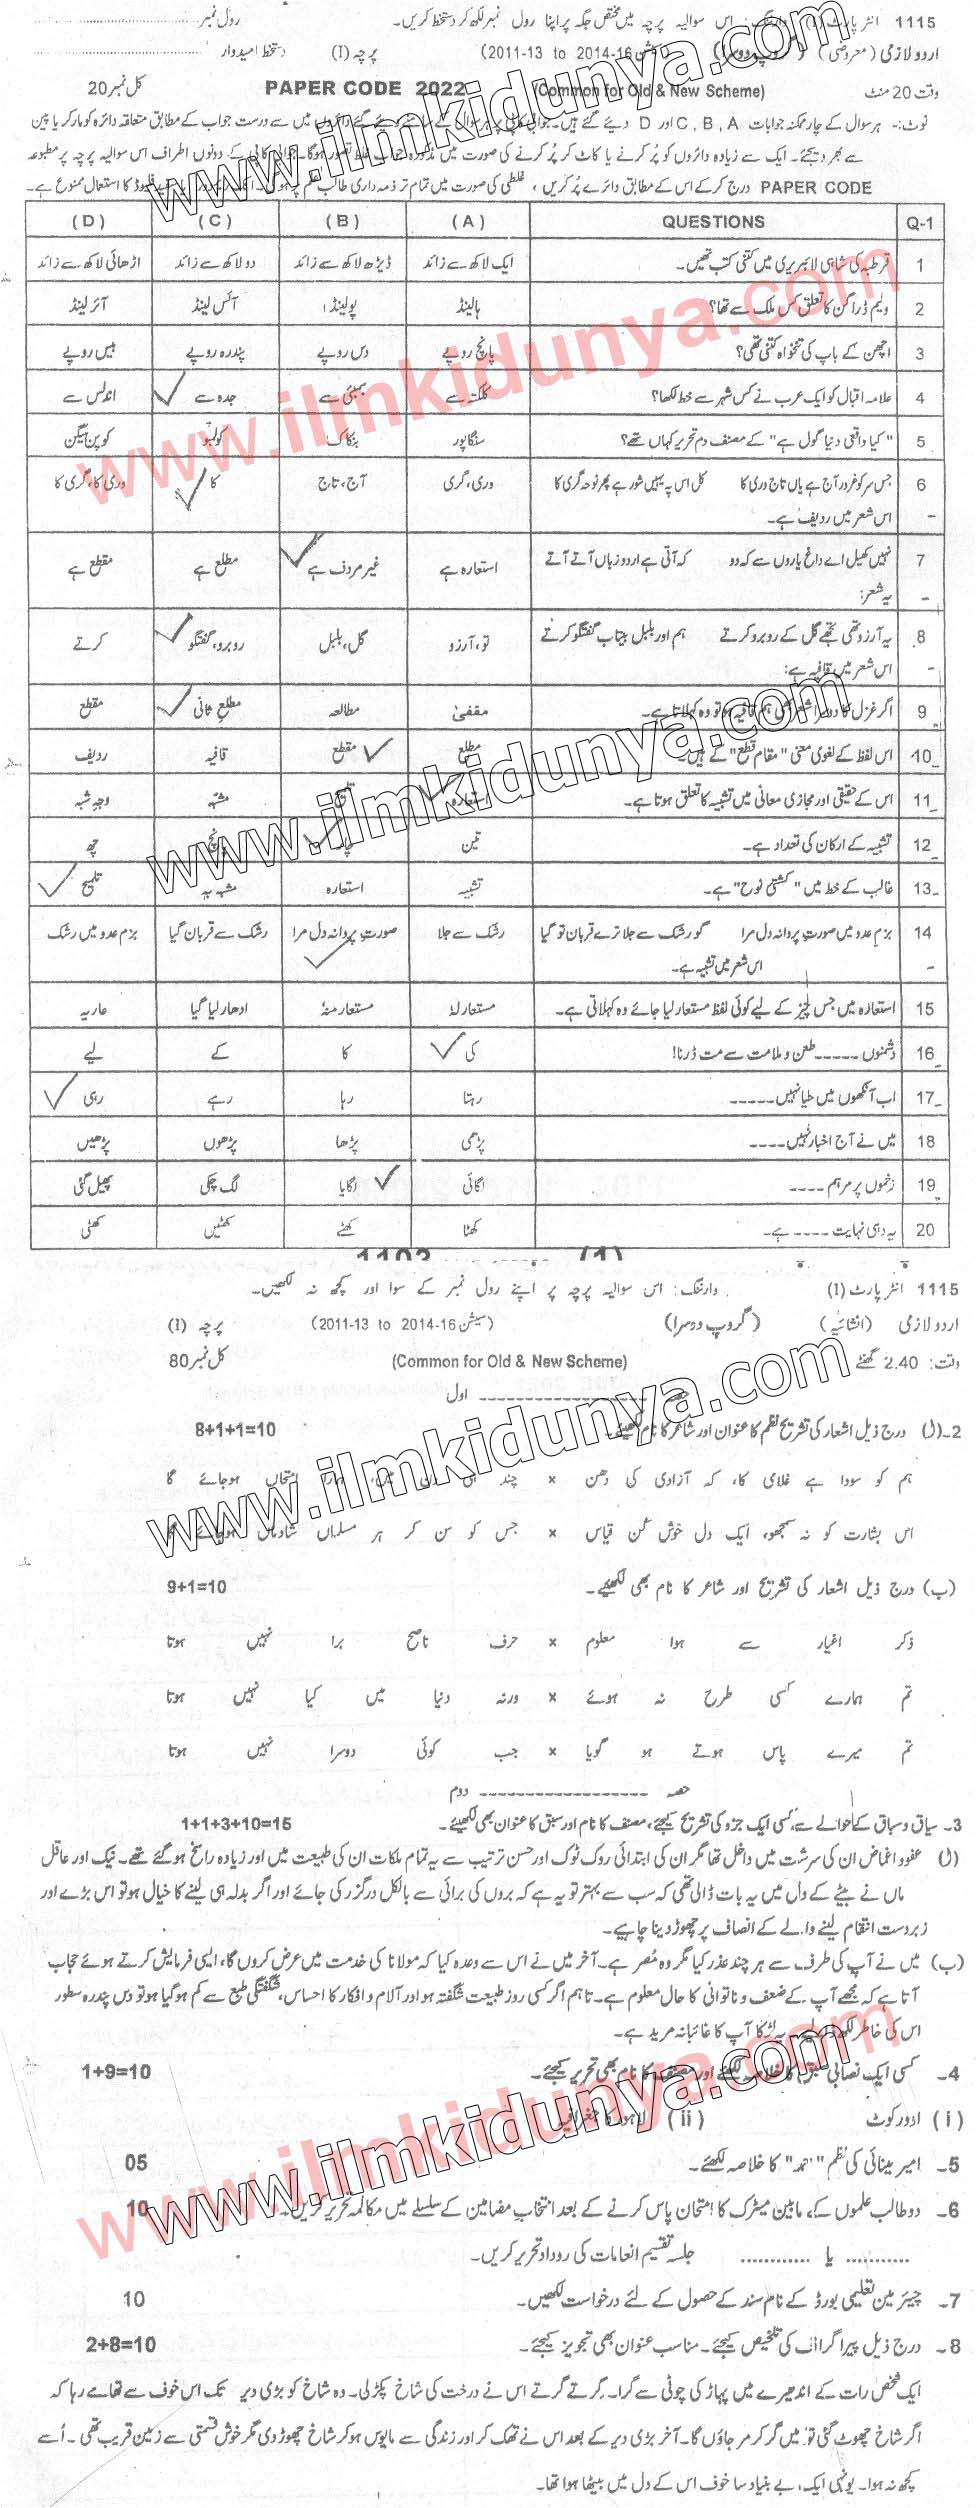 1115 انٹر پارٹ (I) وارننگ:۔ اس سوالیہ پرچہ میں مختص جگہ پر اپنا رول نمبر لکھ کر دستخط کریں۔ رول نمبر
اردو لازمی (معروضی) (گروپ دوسرا) (سیشن 2011-13 to 2014-16) پرچہ (I) دستخط امیدوار
وقت 20 منٹ (Common for Old & New Scheme) PAPER CODE 2022 کل نمبر 20
نوٹ:۔ ہر سوال کے چار ممکنہ جوابات A ,B ,C اور D دیئے گئے ہیں۔ جوابی کاپی پر ہر سوال کے سامنے دیئے گئے دائروں میں سے درست جواب کے مطابق متعلقہ دائرہ کو مارکر یا پین
سے بھر دیجئے۔ ایک سے زیادہ دائروں کو پُر کرنے یا کاٹ کر پُر کرنے کی صورت میں مذکورہ جواب غلط تصور ہوگا۔ جوابی کاپی کے دونوں اطراف اس سوالیہ پرچہ پر مطبوعہ
PAPER CODE درج کر کے اس کے مطابق دائرے پُر کریں، غلطی کی صورت میں تمام تر ذمہ داری طالب علم پر ہوگی۔ فلیوڈ کا استعمال ممنوع ہے۔
Q-1 QUESTIONS (A) (B) (C) (D)
1 قرطبہ کی شاہی لائبریری میں کتنی کتب تھیں۔ ایک لاکھ سے زائد ڈیڑھ لاکھ سے زائد دو لاکھ سے زائد اڑھائی لاکھ سے زائد
2 ولیم ڈراگن کا تعلق کس ملک سے تھا؟ ہالینڈ پولینڈ آئس لینڈ آئر لینڈ
3 اچھن کے باپ کی تنخواہ کتنی تھی؟ پانچ روپے دس روپے پندرہ روپے بیس روپے
4 علامہ اقبال کو ایک عرب نے کس شہر سے خط لکھا؟ کلکتہ سے بمبئی سے جدہ سے اندلس سے
5 "کیا واقعی دنیا گول ہے" کے مصنف دم تحریر کہاں تھے؟ سنگاپور بنکاک کولمبو کوپن ہیگن
6 جس سر کو غرور آج ہے یاں تاج وری کا کل اس پہ یہیں شور ہے پھر نوحہ گری کا وری، گری آج، تاج کا وری کا، گری کا
اس شعر میں ردیف ہے۔
7 نہیں کھیل اے داغ یاروں سے کہہ دو کہ آتی ہے اردو زباں آتے آتے استعارہ ہے غیر مردف ہے مطلع ہے مقطع ہے
یہ شعر:
8 یہ آرزو تھی تجھے گل کے روبرو کرتے ہم اور بلبل بیتاب گفتگو کرتے تو، آرزو گل، بلبل روبرو، گفتگو کرتے
اس شعر میں قافیہ ہے:
9 اگر غزل کا دوسرا شعر بھی ہم قافیہ ہو تو وہ کہلاتا ہے۔ مقفیٰ مطالعہ مطلع ثانی مقطع
10 اس لفظ کے لغوی معنی "مقام قطع" کے ہیں۔ مطلع مقطع قافیہ ردیف
11 اس کے حقیقی اور مجازی معانی میں تشبیہ کا تعلق ہوتا ہے۔ استعارہ مشبہ وجہ شبہ
12 تشبیہ کے ارکان کی تعداد ہے۔ تین چار پانچ چھ
13 غالب کے خط میں "کشتی نوح" ہے۔ تشبیہ استعارہ مشبہ بہ تلمیح
14 بزم عدو میں صورت پروانہ دل مرا گو رشک سے جلا ترے قربان تو گیا رشک سے جلا صورت پروانہ دل مرا رشک سے قربان گیا بزم عدو میں رشک
اس شعر میں تشبیہ ہے۔
15 استعارہ میں جس چیز کے لیے کوئی لفظ مستعار لیا جائے وہ کہلاتی ہے۔ مستعار لہٗ مستعار منہٗ ادھار لیا گیا عاریہ
16 دشمنوں ----- طعن و ملامت سے مت ڈرنا! کی کا کے لیے
17 اب آنکھوں میں حیا نہیں ----- رہتا رہا رہے رہی
18 میں نے آج اخبار نہیں ---- پڑھی پڑھا پڑھوں پڑھیں
19 زخموں پر مرہم ---- لگائی لگایا لگ چکی پھیل گئی
20 یہ دہی نہایت ---- ہے۔ کھٹا کھٹے کھٹیں کھٹی
1115 انٹر پارٹ (I) وارننگ: اس سوالیہ پرچہ پر اپنے رول نمبر کے سوا اور کچھ نہ لکھیں۔
اردو لازمی (انشائیہ) (گروپ دوسرا) (سیشن 2011-13 to 2014-16) پرچہ (I)
وقت: 2.40 گھنٹے (Common for Old & New Scheme) کل نمبر 80
حصہ ------------------ اول
2۔(ا) درج ذیل اشعار کی تشریح نظم کا عنوان اور شاعر کا نام لکھیے۔ 8+1+1=10
ہم کو سودا ہے غلامی کا، کہ آزادی کی دھن × چند ہی دن میں ہمارا امتحاں ہو جائے گا
اس بشارت کو نہ سمجھو، ایک دل خوش کن قیاس × جس کو سن کر ہر مسلماں شادماں ہو جائے گا
(ب) درج ذیل اشعار کی تشریح اور شاعر کا نام بھی لکھیئے۔ 9+1=10
ذکر اغیار سے ہوا معلوم × حرف ناصح برا نہیں ہوتا
تم ہمارے کسی طرح نہ ہوئے × ورنہ دنیا میں کیا نہیں ہوتا
تم میرے پاس ہوتے ہو گویا × جب کوئی دوسرا نہیں ہوتا
حصہ ------------------ دوم
3۔ سیاق و سباق کے حوالے سے کسی ایک جزو کی تشریح کیجئے، مصنف کا نام اور سبق کا عنوان بھی لکھیئے۔ 1+1+3+10=15
(ا) عفو و اغماض ان کی سرشت میں داخل تھا مگر ان کی ابتدائی روک ٹوک اور حسن ترتیب سے یہ تمام ملکات ان کی طبیعت میں اور زیادہ راسخ ہو گئے تھے۔ نیک اور عاقل
ماں نے بیٹے کے دل میں یہ بات ڈالی تھی کہ سب سے بہتر تو یہ ہے کہ بروں کی برائی سے بالکل درگزر کی جائے اور اگر بدلہ ہی لینے کا خیال ہو تو اس بڑے اور
زبردست انتقام لینے والے کے انصاف پر چھوڑ دینا چاہیے۔
(ب) میں نے آپ کی طرف سے ہر چند عذر کیا مگر وہ مُصر ہے۔ آخر میں نے اس سے وعدہ کیا کہ مولانا کی خدمت میں عرض کروں گا، ایسی فرمایش کرتے ہوئے حجاب
آتا ہے کہ مجھے آپ کے ضعف و ناتوانی کا حال معلوم ہے۔ تاہم اگر کسی روز طبیعت شگفتہ ہو اور آلام و افکار کا احساس، شگفتگی طبع سے کم ہو گیا ہو تو دس پندرہ سطور
اس کی خاطر لکھ دیجیے۔ یہ لڑکا آپ کا غائبانہ مرید ہے۔
4۔ کسی ایک نصابی سبق کا خلاصہ لکھئے اور مصنف کا نام بھی تحریر کیجئے۔ 1+9=10
(i) اوور کوٹ (ii) لاہور کا جغرافیہ
5۔ امیر مینائی کی نظم "حمد" کا خلاصہ لکھئے۔ 05
6۔ دو طالب علموں کے مابین میٹرک کا امتحان پاس کرنے کے بعد انتخاب مضامین کے سلسلے میں مکالمہ تحریر کریں۔ 10
........... یا ............ جلسہ تقسیم انعامات کی روداد تحریر کریں۔
7۔ چیئر مین تعلیمی بورڈ کے نام سند کے حصول کے لئے درخواست لکھیں۔ 10
8۔ درج ذیل پیرا گراف کی تلخیص کیجئے۔ مناسب عنوان بھی تجویز کیجئے۔ 2+8=10
ایک شخص رات کے اندھیرے میں پہاڑ کی چوٹی سے گرا۔ گرتے گرتے اس نے درخت کی شاخ پکڑ لی۔ وہ شاخ کو بڑی دیر تک اس خوف سے تھامے رہا کہ
اگر شاخ چھوٹ گئی تو میں گر کر مر جاؤں گا۔ آخر بڑی دیر کے بعد اس نے تھک کر اور زندگی سے مایوس ہو کر شاخ چھوڑ دی مگر خوش قسمتی سے زمین قریب تھی۔ اُسے
کچھ نہ ہوا۔ یونہی ایک بے بنیاد سا خوف اس کے دل میں بیٹھا ہوا تھا۔
www.ilmkidunya.com